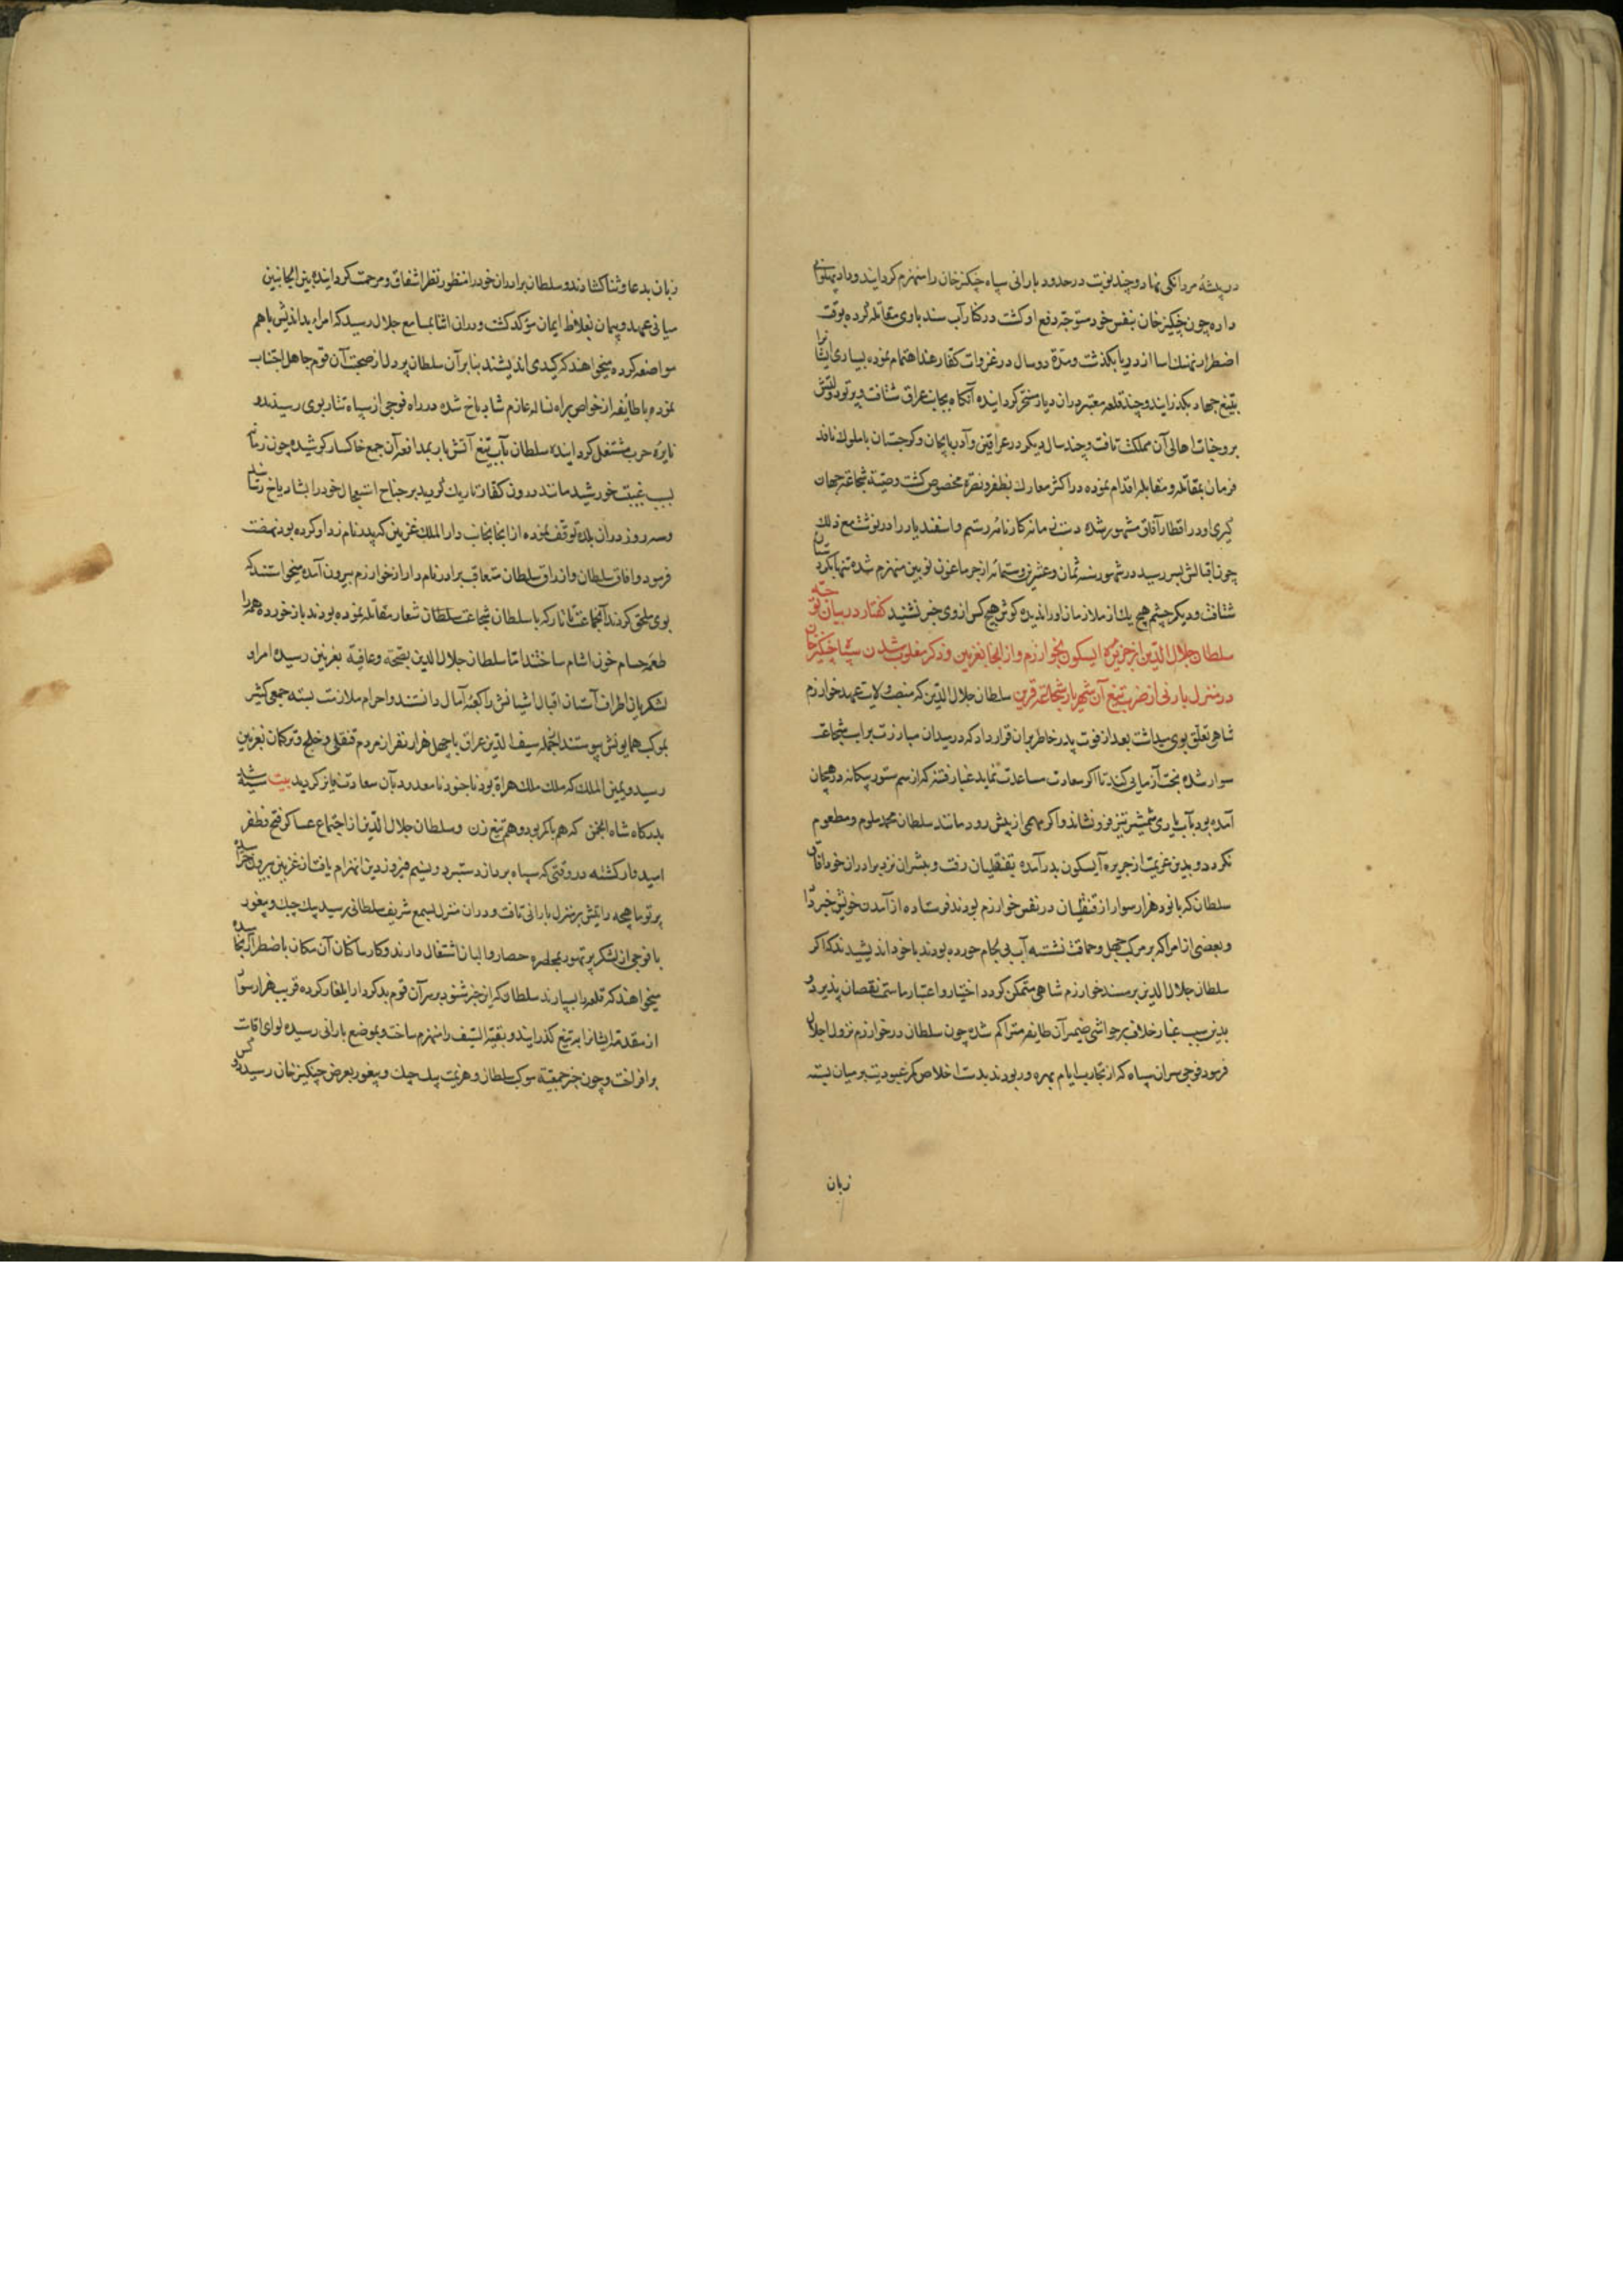 در بیشهٔ مردانکی نهاد و چند نوبت در حدود بارانی سپاه چنکیز خان را منهزم کردانید و داد پهلوانی
داده چون چنکیز خان بنفس خود متوجه دفع او کشت در کنار آب سند با وی مقاتله کرده بوقت
اضطرار نهنک اسا از دریا بکذشت و مدة دو سال در غزوات کفار هند اهتمام نموده بسیاری ایشانرا
بتیغ جهاد بکذرانید و چند قلعه معتبر در ان دیار مسخر کردانیده آنکاه بجانب عراق شتافت و پرتو دولتش
بر وجنات اهالی آن مملکت تافت و چند سال دیکر در عراقین و آذربایجان و کرجستان با ملوک نافذ
فرمان بمقاتله و مقابله اقدام نموده در اکثر معارک بظفر و نصرة مخصوص کشت و صیت شجاعة جهان
کیری او در اقطار آفاق مشهور شده دست زمانه کارنامهٔ رستم و اسفندیار را در نوشت مع ذلک
چون اقبالش بسر رسید در شهور سنه ثمان و عشرین و ستمائه از جرماغون نوبین منهزم شده تنها بکردستان
شتافت و دیکر چشم هیچ یک از ملازمان او را ندیده کوش هیچ کس از وی خبر نشنید کفتار در بیان توجه
سلطان جلال الدین از جزیرهٔ ابسکون بخوارزم و از انجا بغزنین و ذکر مغلوب شدن سپاه چنکیز خان
در منزل بارانی از ضرب تیغ آن شهریار شجاعة قرین سلطان جلال الدین که منصب ولایت عهد خوارزم
شاهی تعلق بوی میداشت بعد از فوت پدر خاطر بران قرار داد که در میدان مبارزت بر اسب شجاعة
سوار شده بخت آزمایی کند تا اکر سعادت مساعدت نماید غبار فتنه که از سم ستور بیکانه در هیجان
آمده بود بآب یاری شمشیر تیز فرو نشاند و اکر مهمی از پیش رود مانند سلطان محمد ملوم و مطعوم
نکردد و بدین عزیمت از جزیره آبسکون بدر آمده بقنقلیان رفت و مبشران نزد برادران خود اق
سلطان که با نود هزار سوار از قنقلیان در نفس خوارزم بودند فرستاده از آمدن خویش خبر داد
و بعضی از امرا که بر مرکب جهل و حماقت نشسته آب بی لجام خورده بودند با خود اندیشیدند که اکر
سلطان جلال الدین بر مسند خوارزم شاهی متمکن کردد اختیار و اعتبار ما سمت نقصان پذیرد و
بدین سبب غبار خلاف بر حواشی ضمیر آن طایفه متراکم شده چون سلطان در خوارزم نزول اجلال
فرمود فوجی سران سپاه که از تجارب ایام بهره ور بودند بدست اخلاص کمر عبودیت بر میان بسته
زبان
زبان بدعا و ثنا کشادند و سلطان برادران خود را منظور نظر اشفاق و مرحمت کردانیده بین الجانبین
مبانی عهد و پیمان بغلاظ ایمان مؤکد کشت و در ان اثنا بمسامع جلال رسید که امراء بد اندیش با هم
مواضعه کرده میخواهند که کیدی اندیشند بنا بر آن سلطان پر دل از صحبت آن قوم جاهل اجتناب
نموده با طایفه از خواص براه نسا له عازم شادیاخ شده در راه فوجی از سپاه تتار بوی رسیدند و
نایرهٔ حرب مشتعل کردانیده سلطان بآب تیغ آتش بار بمدافعه آن جمع خاکسار کوشیده چون زمانه
بسبب غیبت خورشید مانند درون کفار تاریک کردید بر جناح استیجال خود را بشادیاخ رسانید
و سه روز در ان بلده توقف نموده از انجا بجانب دار الملک غزنین که پدر نامزد او کرده بود نهضت
فرمود و اق سلطان و ازراق سلطان متعاقب برادر نام دار از خوارزم بیرون آمده میخواستند که
بوی ملحق کردند آنجماعت تاتار که با سلطان شجاعت شعار مقاتله نموده بودند باز خورده همه را
طعمه حسام خون اشام ساختند اما سلطان جلال الدین بصحة و عافیة بغزنین رسیده امرا و
لشکریان اطراف آستان اقبال آشیانش را کعبهٔ آمال دانستند و احرام ملازمت بسته جمعی کثیر
بموکب همایونش پیوستند ازانجمله سیف الدین عراق با چهل هزار نفر از مردم قنقلی و خلج و ترکمان بغزنین
رسید و یمین الملک که ملک ملک هراة بود با جنود نا معدود بآن سعادت فایز کردید بیت
بدرکاه شاه انجمن که هم باکر بود و هم تیغ زن و سلطان جلال الدین از اجتماع عساکر فتح و ظفر
امیدوار کشته در وقتی که سپاه برد از دستبرد و نسیم فیروزدین انهزام یافت از غزنین بیرون
پرتو ماهچه رایتش بر منزل بارانی تافت و در ان منزل بسمع شریف سلطانی رسید که بیک چک و بیغور
با فوجی از لشکر پر تهور بمحاصره حصار والیان اشتغال دارند و کار ساکنان آن مکان باضطرار انجامیده
میخواهند که قلعه را بسپارند سلطان که این خبر شنود بر سر آن قوم بدکردار ایلغار کرده قریب هزار سوار
از مقدمه ایشانرا بر تیغ کذرانید و بقیة السیف را منهزم ساخت و بموضع بارانی رسیده لوای اقامت
برافراخت و چون خبر جمعیة موکب سلطان و هزیمت بیک چک و بیغور بعرض چنکیز خان رسید